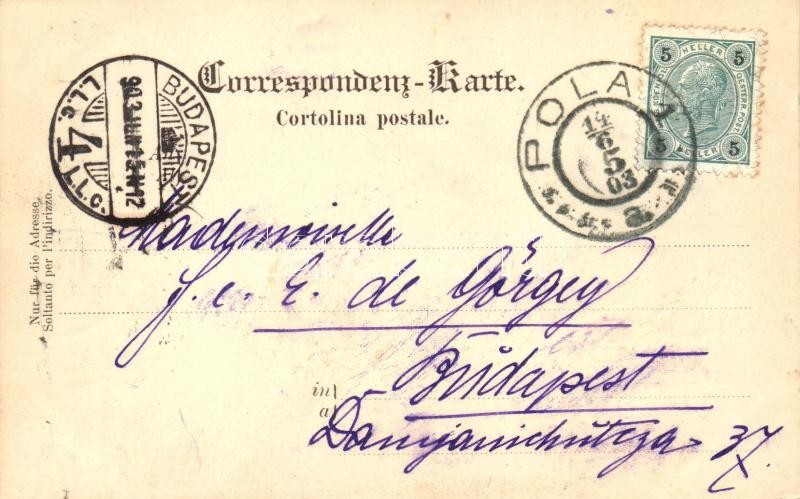 Correspondenz-Karte.
Cortolina postale.
5 HELLER 5
5 HELLER 5
POLA 1
14/6
5
03
BUDAPEST
4
I.L.C.
Nur für die Adresse.
Soltanto per l'indirizzo.
Mademoiselle
E. de Görgey
in
a
Budapest
37